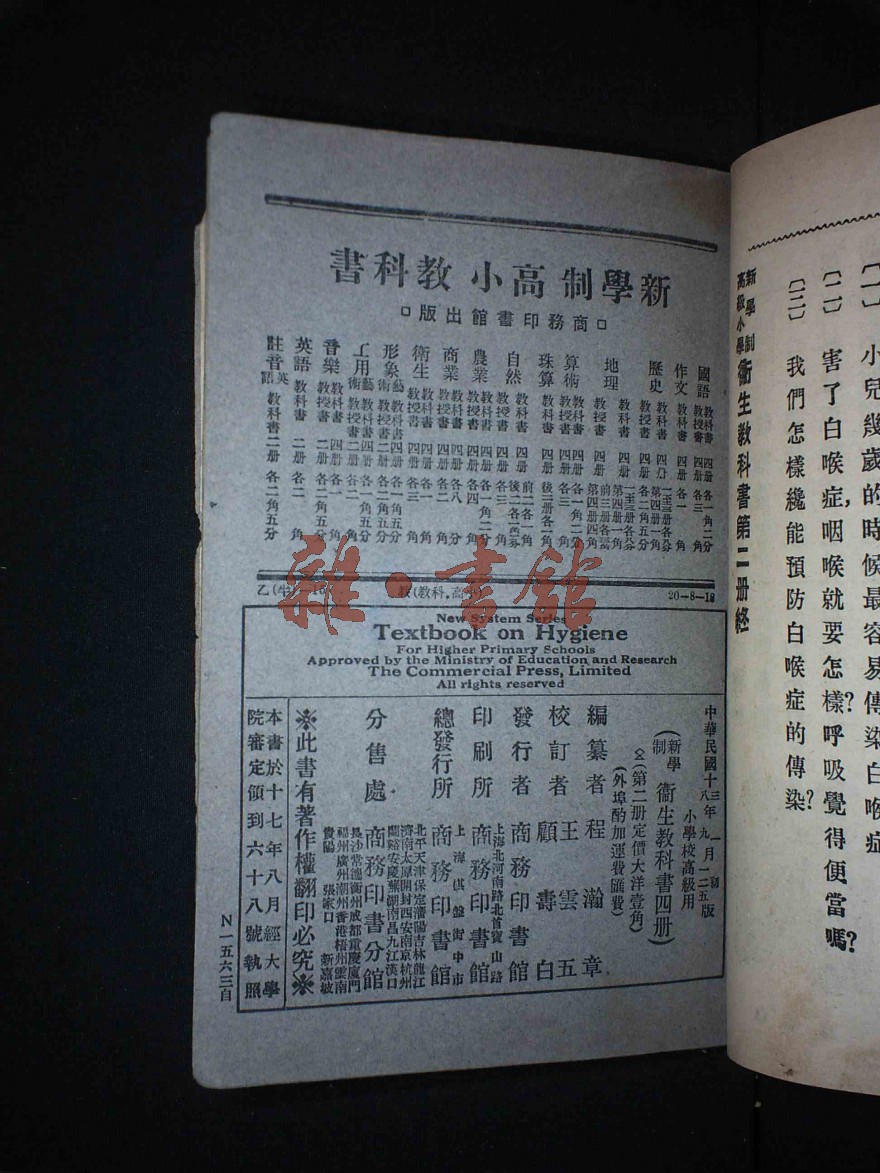 〔一〕 小兒幾歲的時候最容易傳染白喉症
〔二〕 害了白喉症，咽喉就要怎樣？呼吸覺得便當嗎？
〔三〕 我們怎樣纔能預防白喉症的傳染？
新學制高級小學衞生教科書第二册終
新學制高小教科書
□商務印書館出版□
國語 教科書 四册 各一角二分
教授書 四册 各三角
作文 教科書 四册 各一角
歷史 教科書 四册
教授書 四册 各二角五分
地理 教科書 四册
教授書 四册
算術 教科書 四册
教授書 四册 各三角
珠算 教科書 四册
自然 教科書 四册
教授書 四册 各三角
農業 教科書 四册 各一角二分
教授書 四册 各四角
商業 教科書 四册 各八分
教授書 四册 各二角
衞生 教科書 四册 各一角
教授書 四册 各三角
形象藝術 教科書 四册 各一角五分
教授書 二册 各二角
工用藝術 教科書 四册 各一角五分
教授書 二册 各二角
音樂 教科書 四册 各一角
教授書 二册 各二角五分
英語 教科書 二册 各二角
註音英語 教科書 二册 各二角五分
雜·書館
20-8-18
New System Series
Textbook on Hygiene
For Higher Primary Schools
Approved by the Ministry of Education and Research
The Commercial Press, Limited
All rights reserved
中華民國十三年一月初版
十八年九月一二五版
小學校高級用
（新學制）衞生教科書四册）
（第二册定價大洋壹角）
（外埠酌加運費匯費）
編纂者 程瀚章
校訂者 王雲五
顧壽白
發行者 商務印書館
上海北河南路北首寶山路
印刷所 商務印書館
上海棋盤街中市
總發行所 商務印書館
北平天津保定瀋陽吉林龍江
濟南太原開封西安南京杭州
蘭谿安慶蕪湖南昌九江漢口
分售處 商務印書分館
長沙常德衡州成都重慶廈門
福州廣州潮州香港梧州雲南
貴陽 張家口 新嘉坡
※此書有著作權翻印必究※
本書於十七年八月經大學
院審定領到六十八號執照
N一五六三自